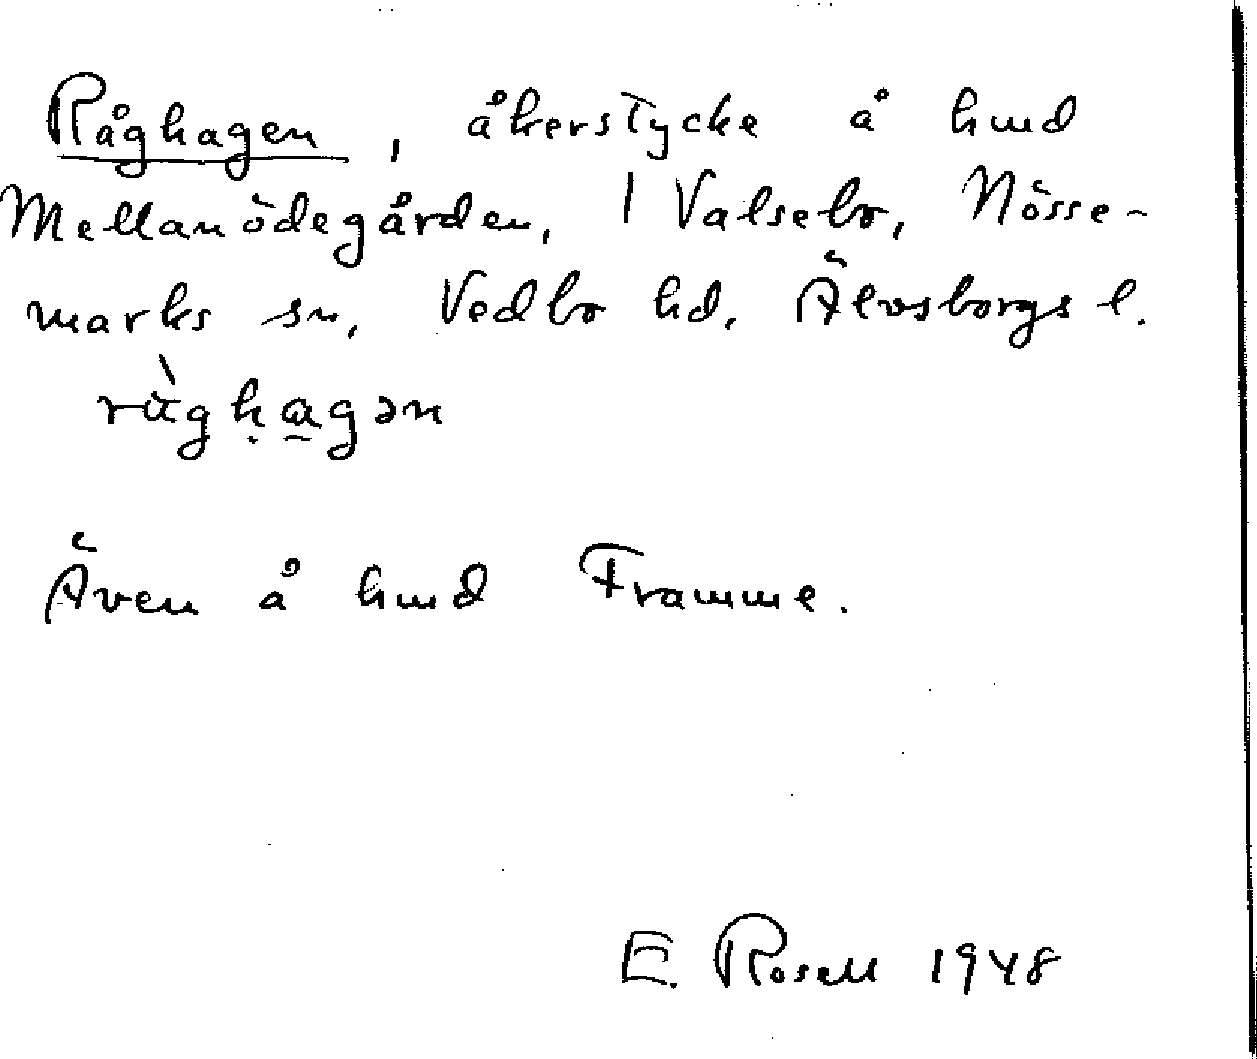 Råghagen, åkerstycke å hmd
Mellanödegården, 1 Valsebo, Nösse-
marks sn, Vedbo hd, Älvsborgs l.
råghagən
Även å hmd Framme.
E. Rosell 1948